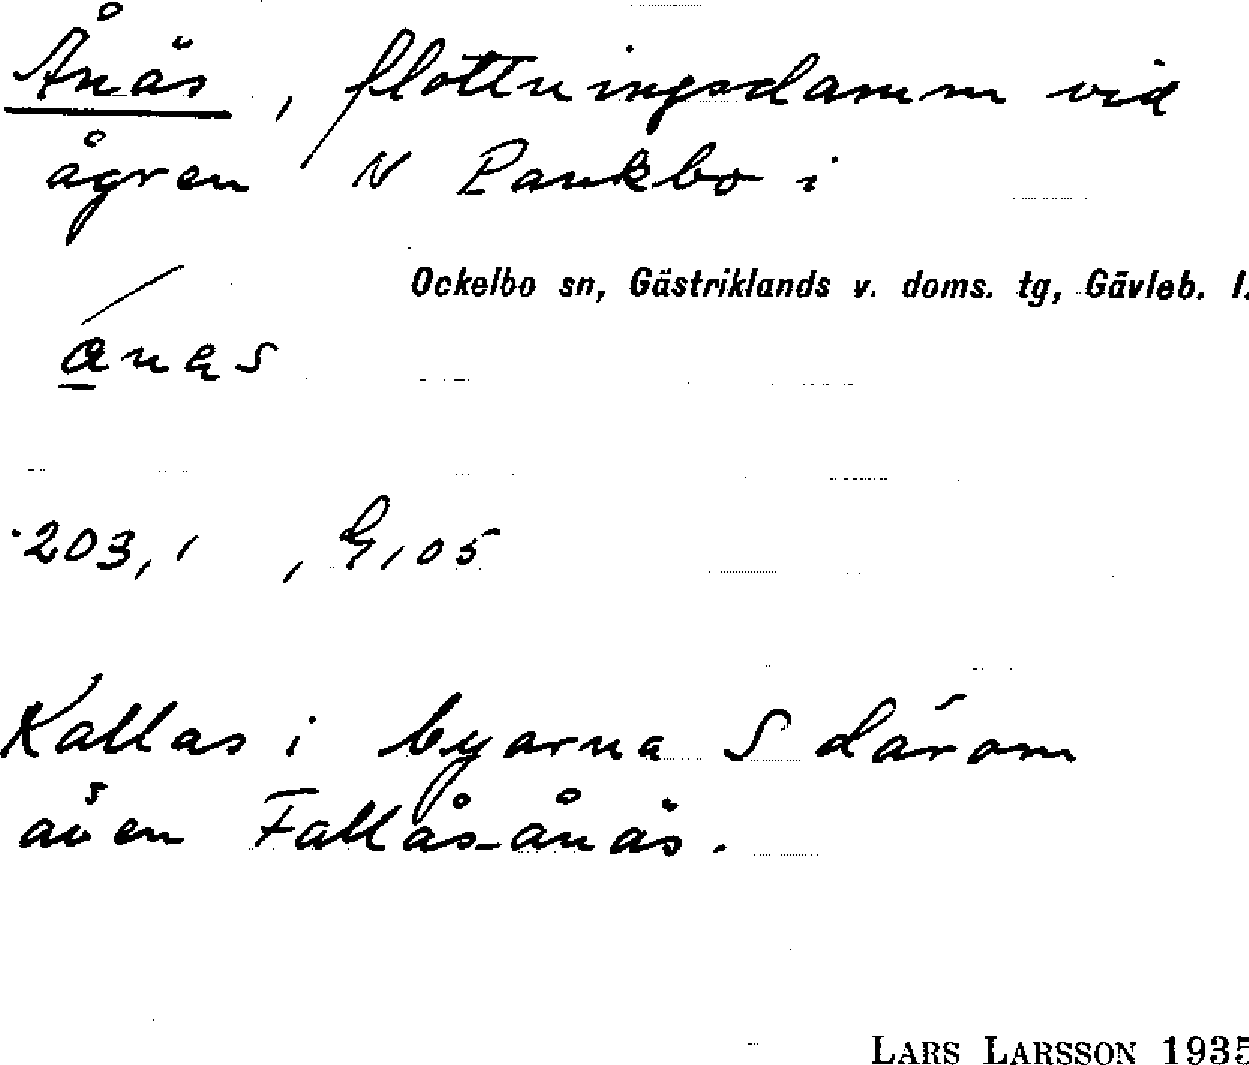 Ånäs, flottningsdamm vid
ågren N Pankbo i
Ockelbo sn, Gästriklands v. doms. tg, Gävleb. l.
203,1, G,05
Kallas i byarna S därom
även Fallås-ånäs.
LARS LARSSON 1935